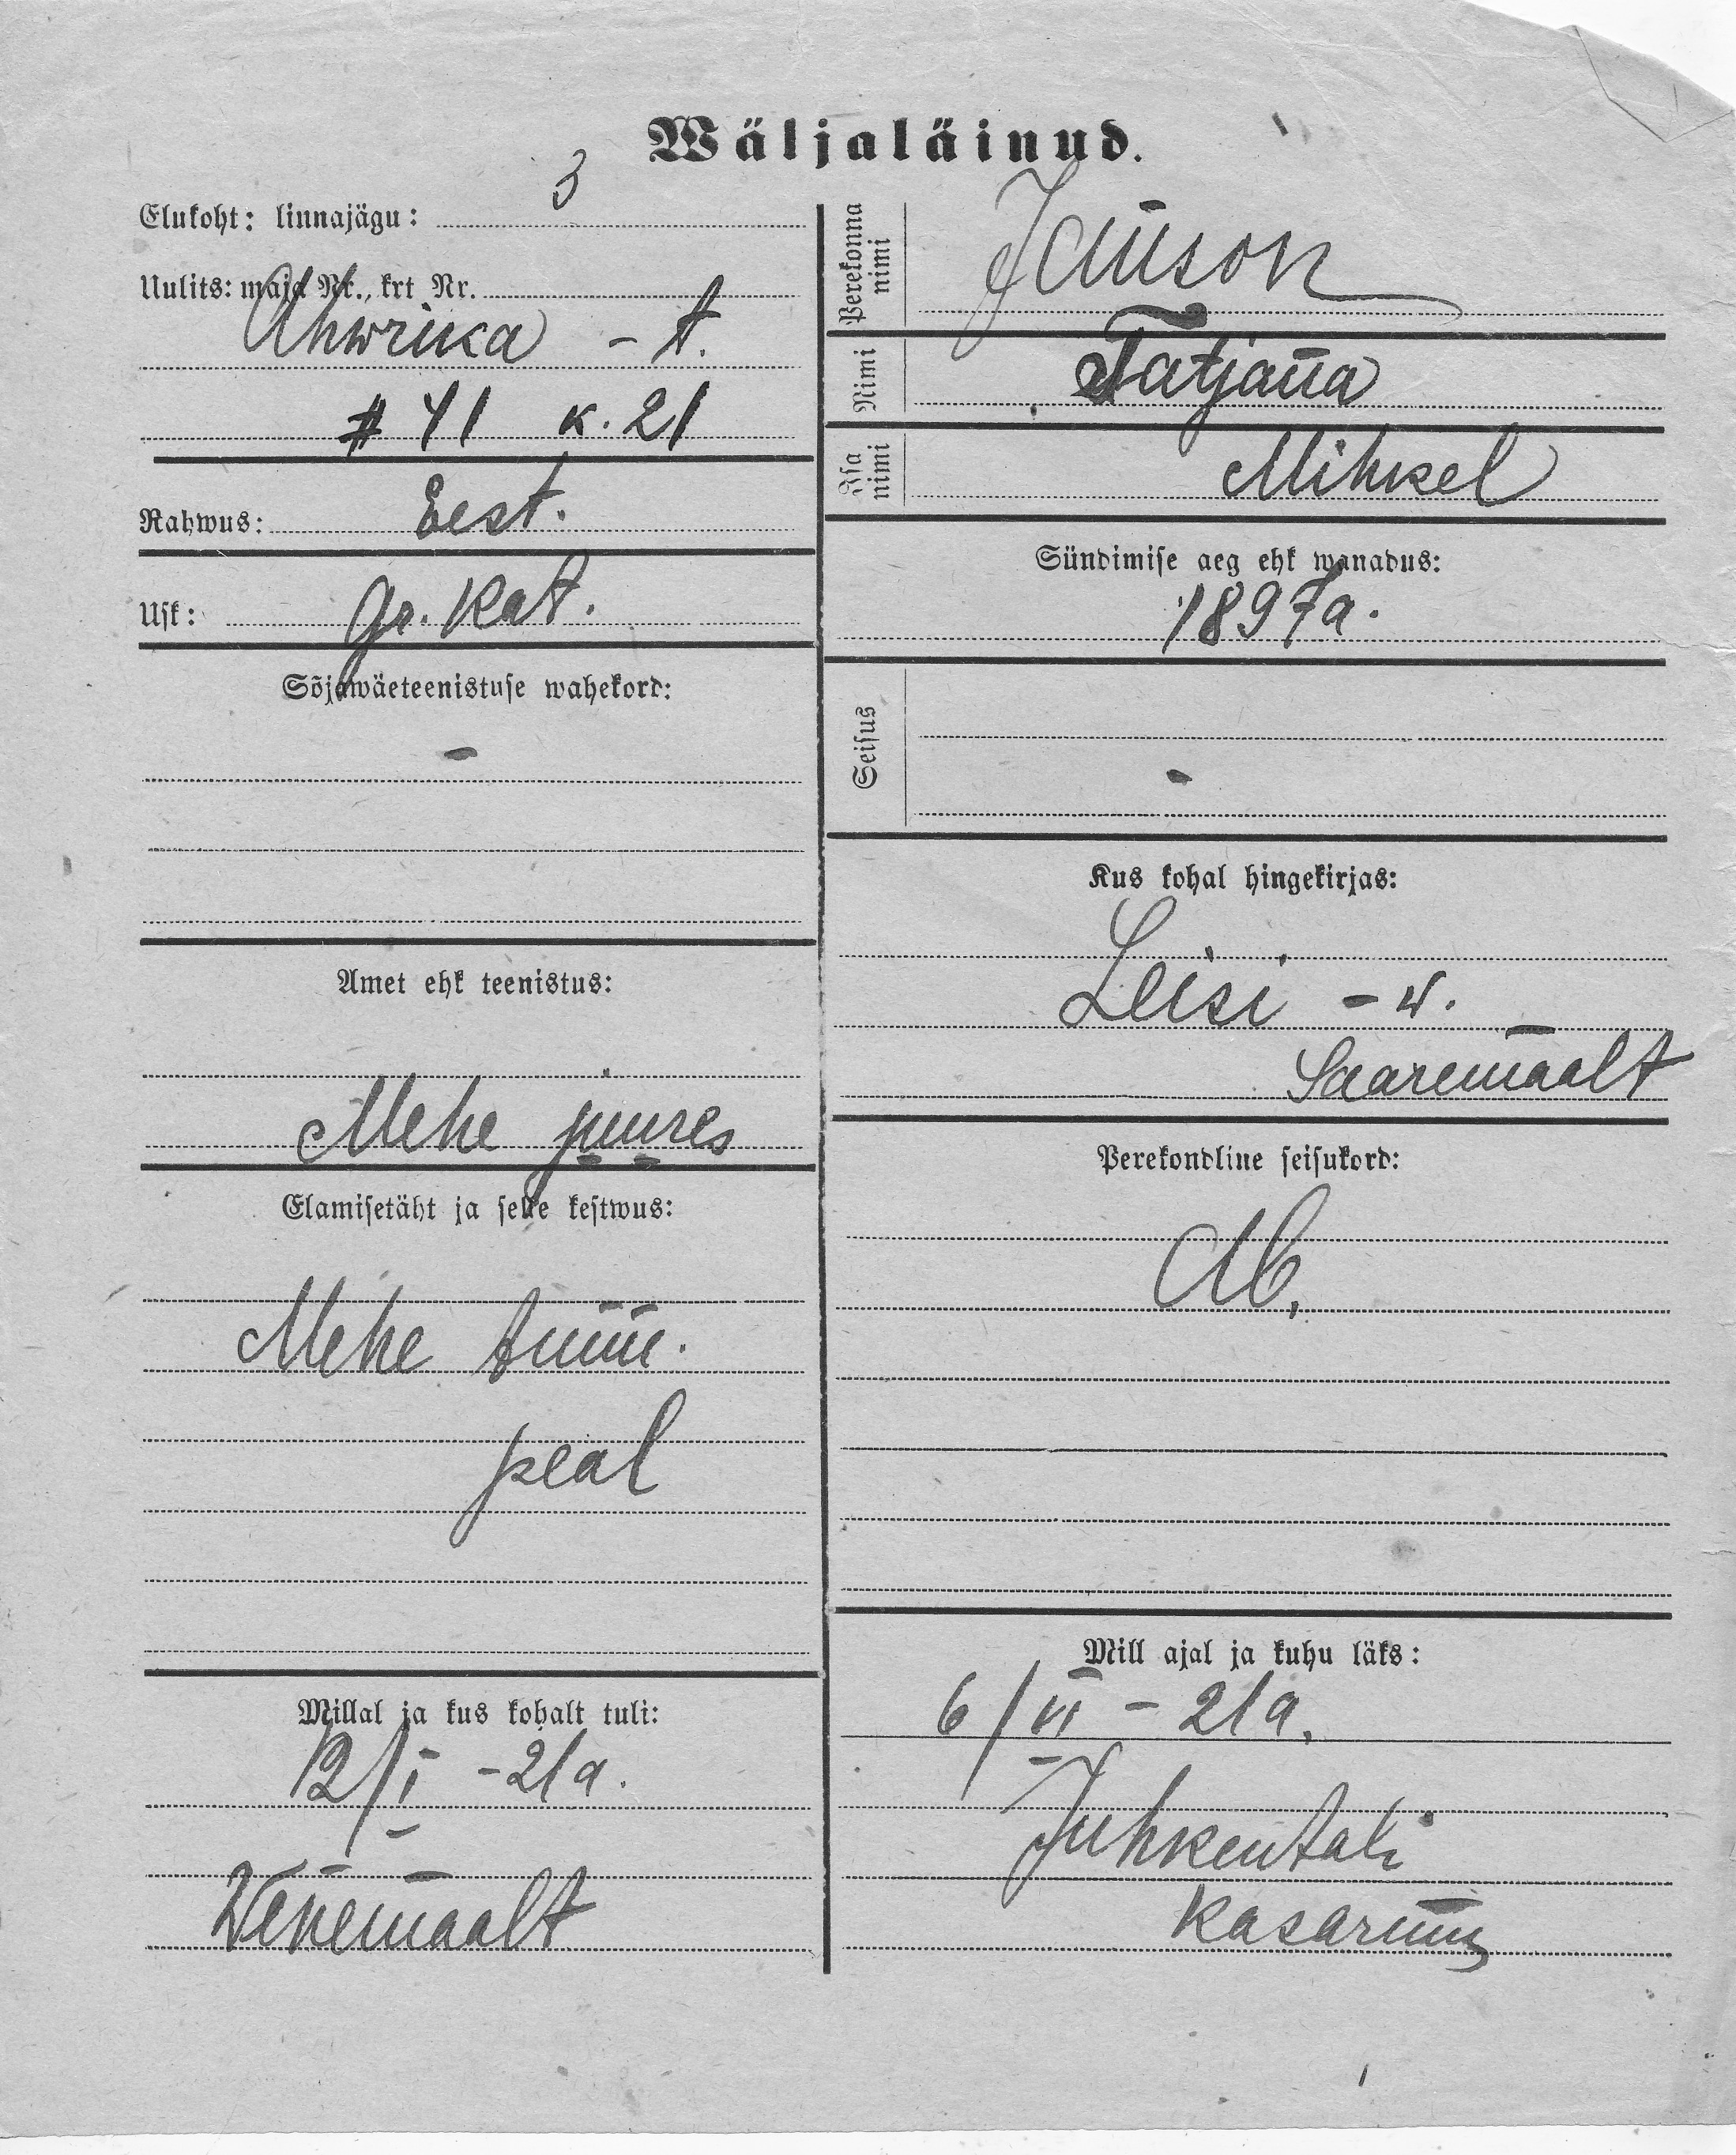 Wäljaläinud.
Elukoht: linnajägu: 3
Uulits: maja Nr., krt Nr.
Ahwrika - t.
# 41 k. 21
Rahwus: Eest.
Usk: gr. kat.
Sõjawäeteenistuse wahekord:
-
Amet ehk teenistus:
Mehe juures
Elamisetäht ja selle kestwus:
Mehe tunn.
peal
Millal ja kus kohalt tuli:
12/I - 21 a.
Wenemaalt
Perekonna nimi
Janson
Nimi
Tatjana
Isa nimi
Mihkel
Sündimise aeg ehk wanadus:
1897 a.
Seisus
-
Kus kohal hingekirjas:
Leisi - w.
Saaremaalt
Perekondline seisukord:
Ab.
Mill ajal ja kuhu läks:
6/VI - 21 a.
Juhkentali